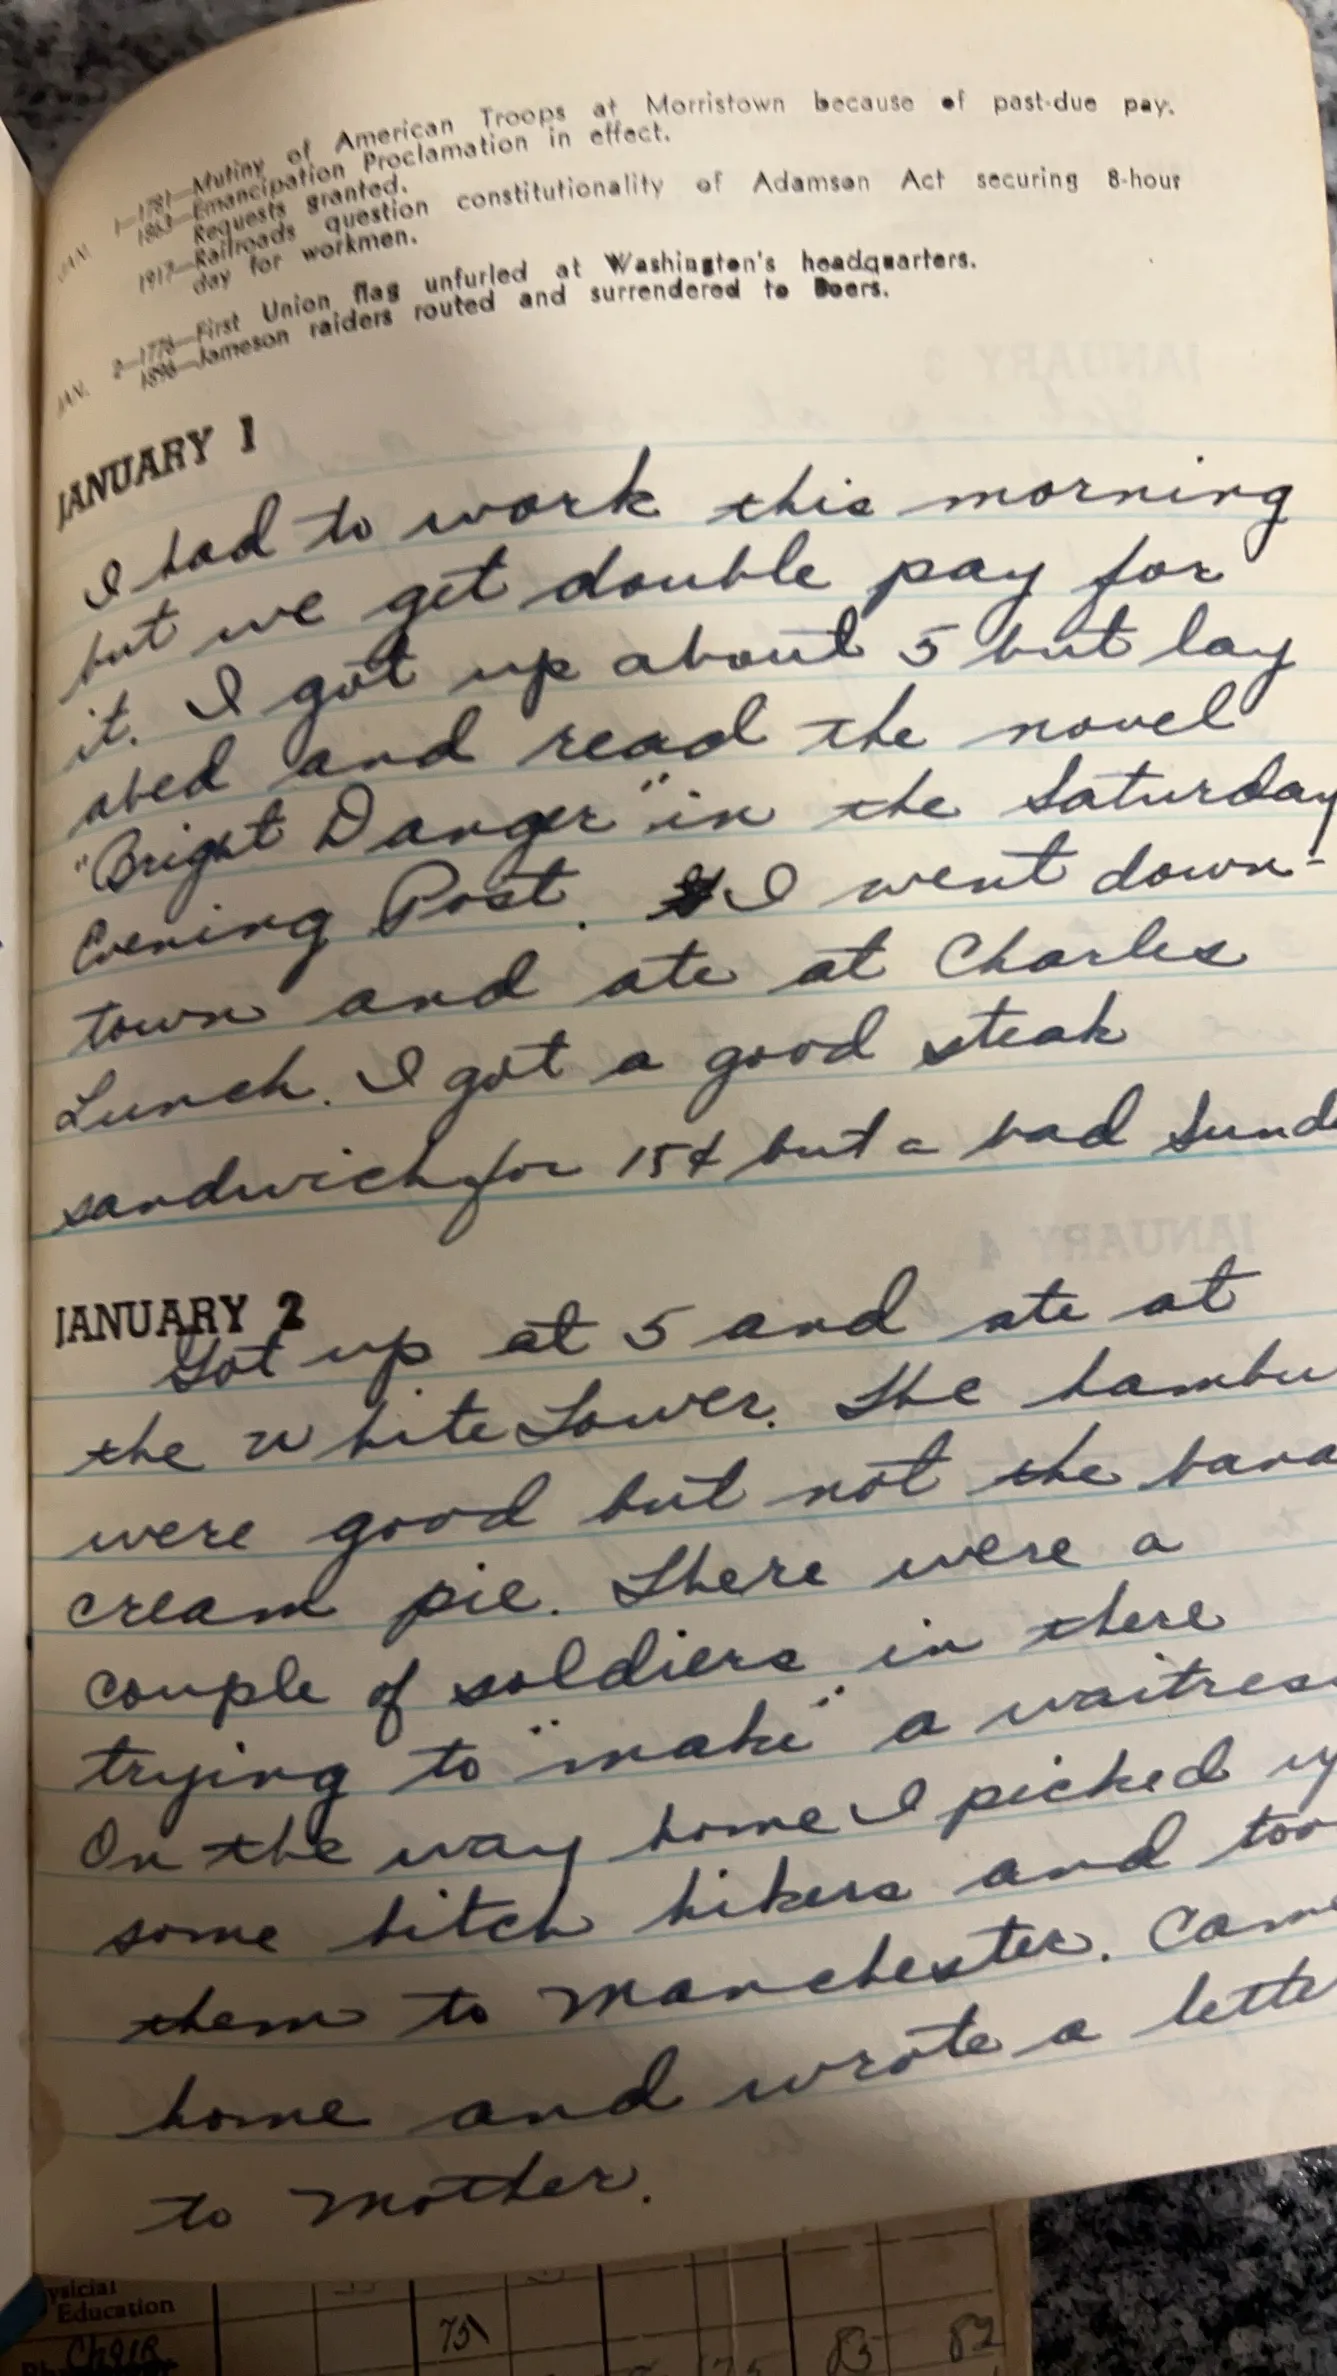 JAN. 1—1781—Mutiny of American Troops at Morristown because of past-due pay.
1863—Emancipation Proclamation in effect.
Requests granted.
1917—Railroads question constitutionality of Adamson Act securing 8-hour
day for workmen.
JAN. 2—1776—First Union flag unfurled at Washington's headquarters.
1896—Jameson raiders routed and surrendered to Boers.
JANUARY 1
I had to work this morning
but we get double pay for
it. I got up about 5 but lay
abed and read the novel
"Bright Danger" in the Saturday
Evening Post. I went down-
town and ate at Charles
Lunch. I got a good steak
sandwich for 15¢ but a bad Sund
JANUARY 2
Got up at 5 and ate at
the White Tower. The hambu
were good but not the bana
cream pie. There were a
couple of soldiers in there
trying to "make" a waitress
On the way home I picked up
some hitch hikers and too
them to Manchester. Came
home and wrote a lette
to Mother.
ysicial
Education
Choir
75
75
83 82